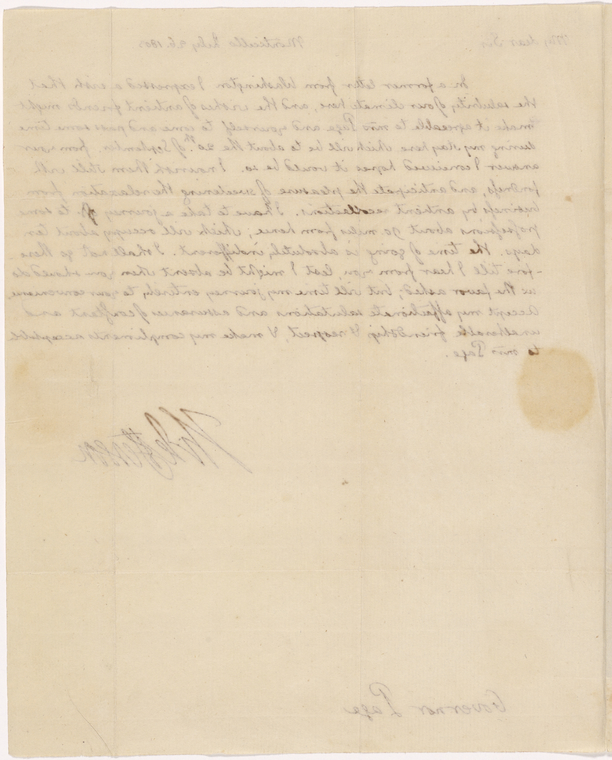 My dear Sir
Monticello July 26. 180
In a former letter from Washington I expressed a wish that
the salubrity of our climate here, and the wishes of antient friends might
make it agreeable to mrs Page and yourself to come and pass some time
during my stay here which will be to about the 20th of September. from your
answer I concieved hopes it would be so. I nourish them still with
fondness, and anticipate the pleasure of sweetening the relaxation from
business by antient recollections. I have to take a journey to some
possessions about 90 miles from hence, which will occupy about ten
days. the time of going is absolutely indifferent. I shall not go there
-fore till I hear from you, lest I might be absent when you should do
us the favor asked; but will time my journey entirely to your convenience.
Accept my affectionate salutations and assurances of constant and
unalterable friendship & respect, & make my compliments acceptable
to mrs Page.
Th: Jefferson
Governor Page